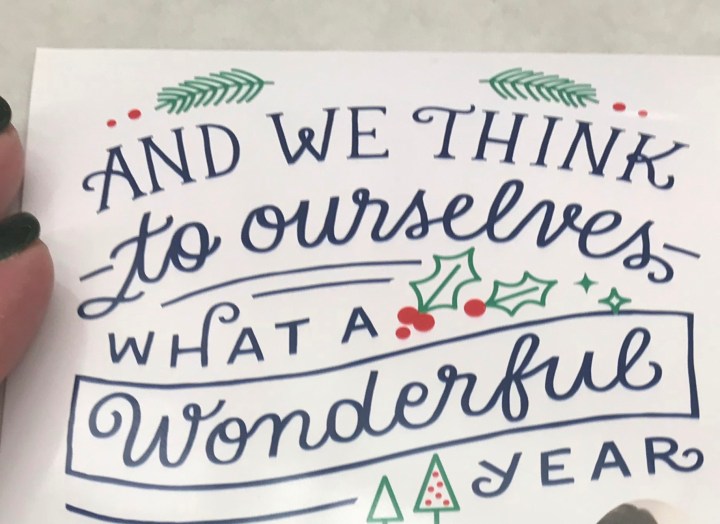 AND WE THINK
to ourselves
WHAT A
Wonderful
YEAR